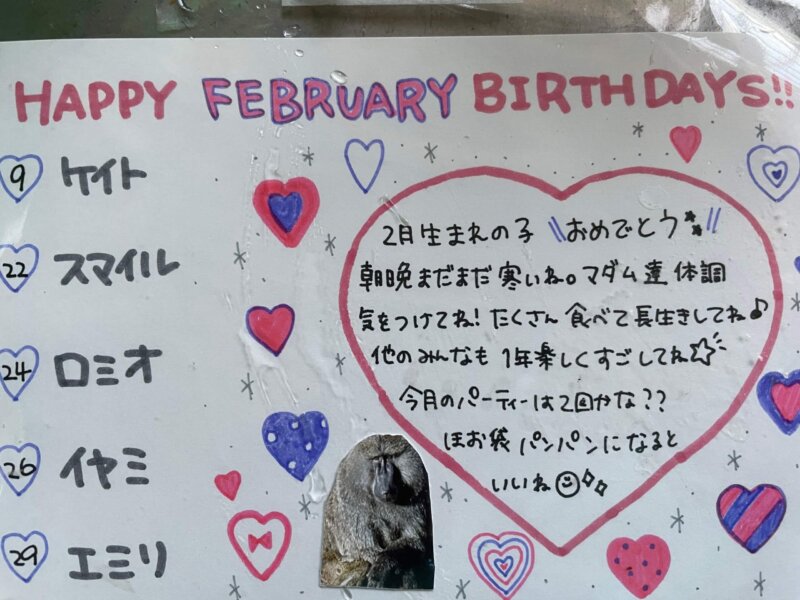 HAPPY FEBRUARY BIRTHDAYS!!
9 ケイト
22 スマイル
24 ロミオ
26 イヤミ
29 エミリ
2月生まれの子 \\おめでとう//
朝晩まだまだ寒いね。マダム達 体調
気をつけてね!たくさん食べて長生きしてね♪
他のみんなも 1年楽しくすごしてね☆
今月のパーティーは2回かな??
ほお袋パンパンになると
いいね☺